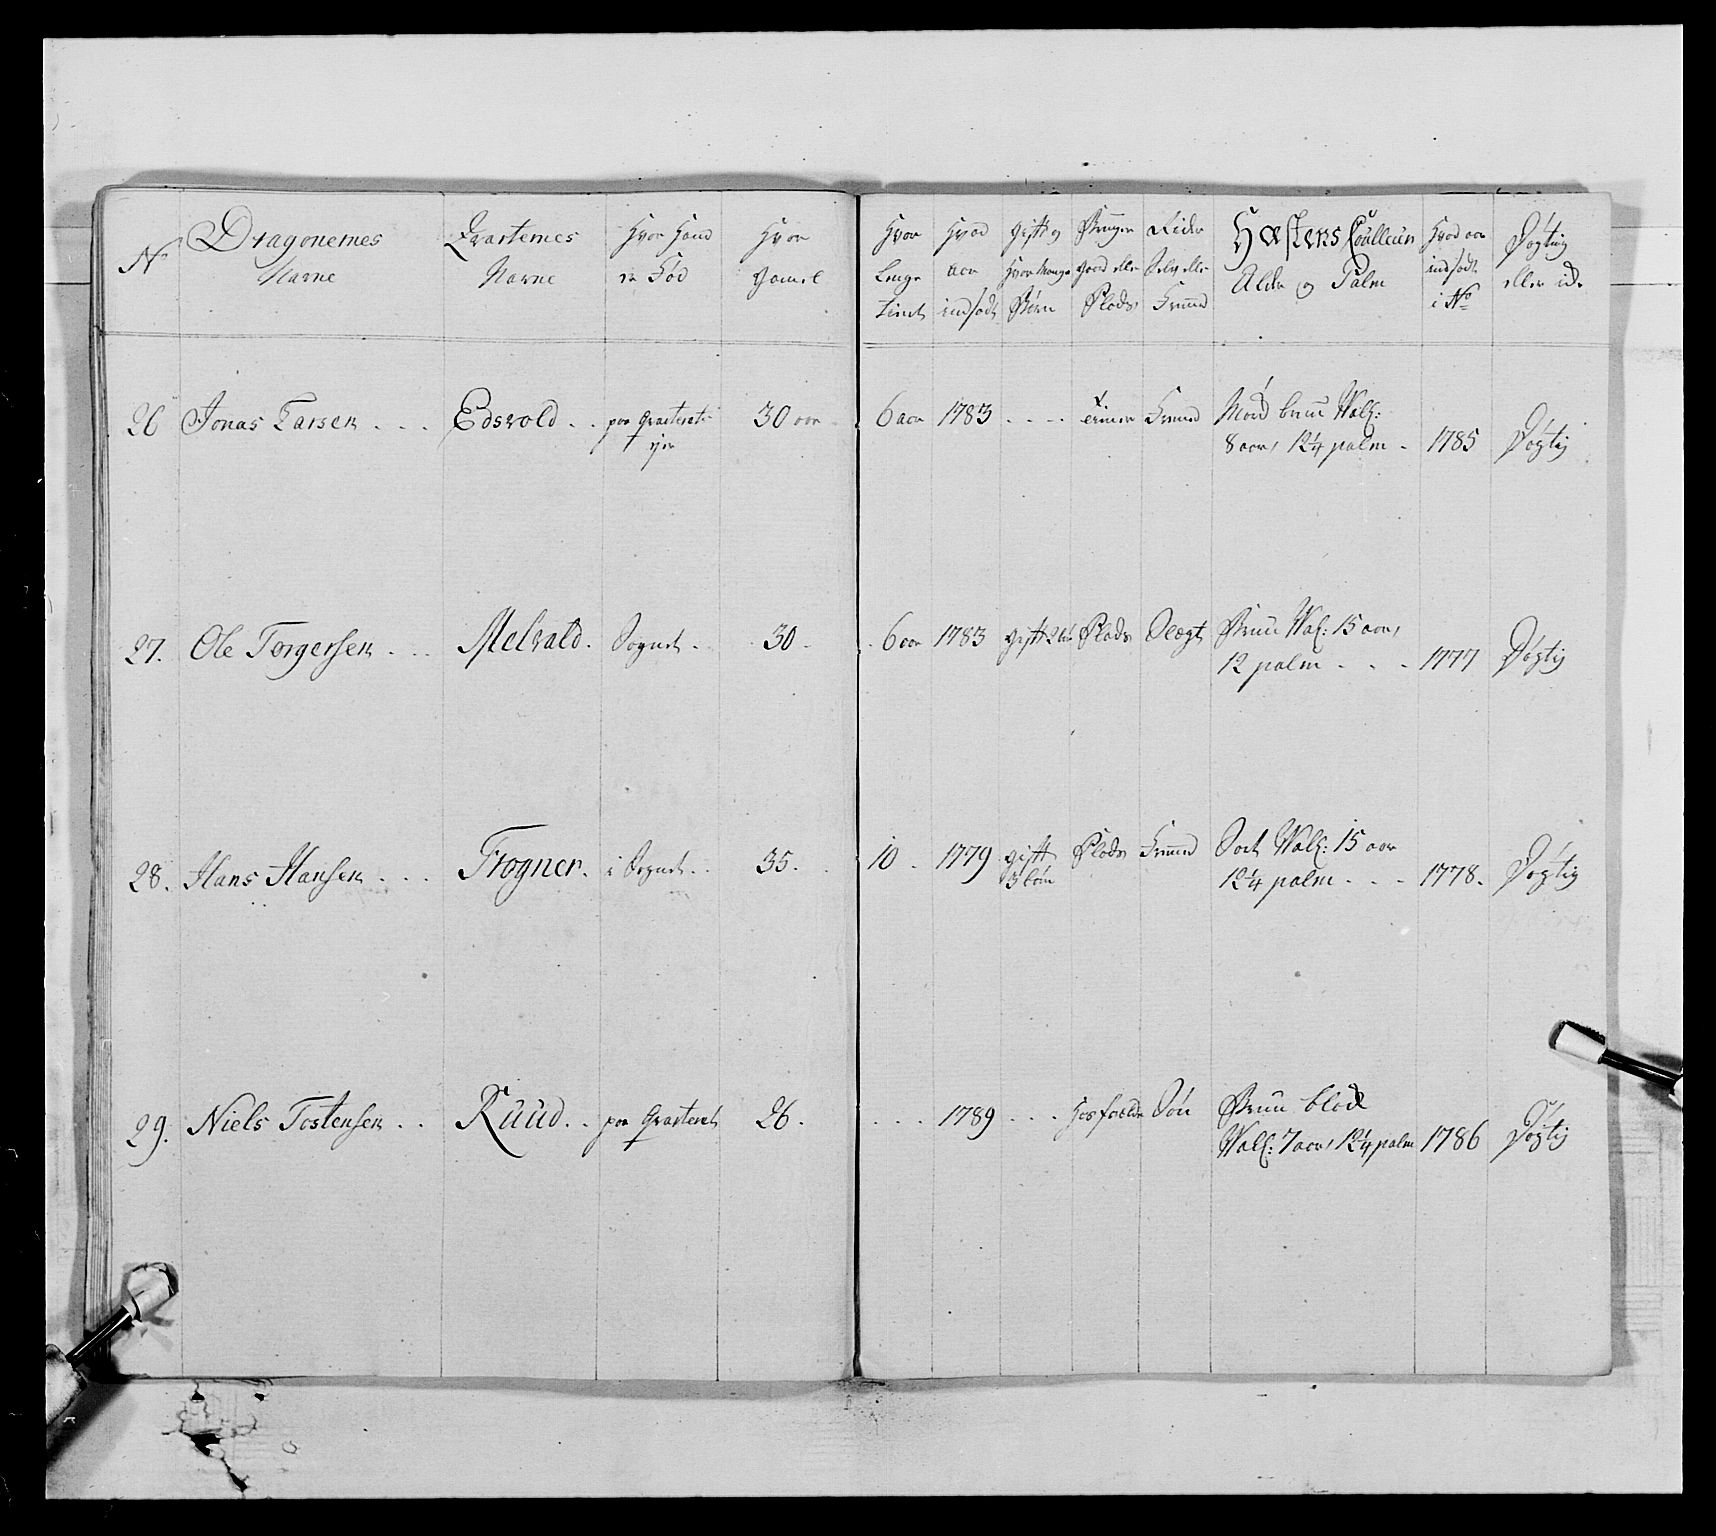 No
Dragonernes
Narne
Qvarternes
Narne
Hvor Hand
er Fød
Hvor
Gamel
Hvor
Lenge
tient
Hvad
aar
indsadt
Gift og
Hvor Mange
Børn
Bruger
Gaard eller
Plads
Rider
Selv eller
Fremed
Hæstens Coulleur
Alder og Palm
Hvad aar
indsadt
i No
Dygtig
eller ide
26 Jonas Larsen . . . Edsvold . . paa Qvarteret 30 aar 6 aar 1783 . . . . Fremed Mørk brun Wall:
8 aar, 12¼ palm . 1785 Dygtig
27. Ole Torgersen . . . Melvald . Sognet . 30 . 6 aar 1783 gift 2 bør Plads Slegt Brun Wal: 15 aar,
12 palm . . . 1777 Dygtig
28. Hans Hansen . . . Frogner . i Sognet . . 35 . 10 . 1779 gift Plads Fremed Sort Wall: 15 aar
3 børn 12¼ palm . . . 1778. Dygtig
29. Niels Tostensen . . Ruud . . paa Qvarteret 26 . . . . 1789 . . . Hos forældr Søn Brun
Wall: 7 aar, 12¼ palm 1786 Dygtig